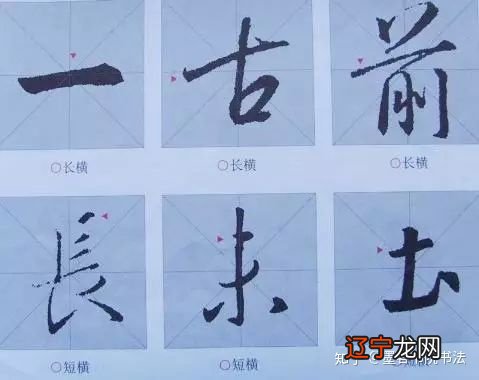 一 古 前
○长横 ○长横 ○长横
長 未
○短横 ○短横
知乎 书法
辽宁龙网